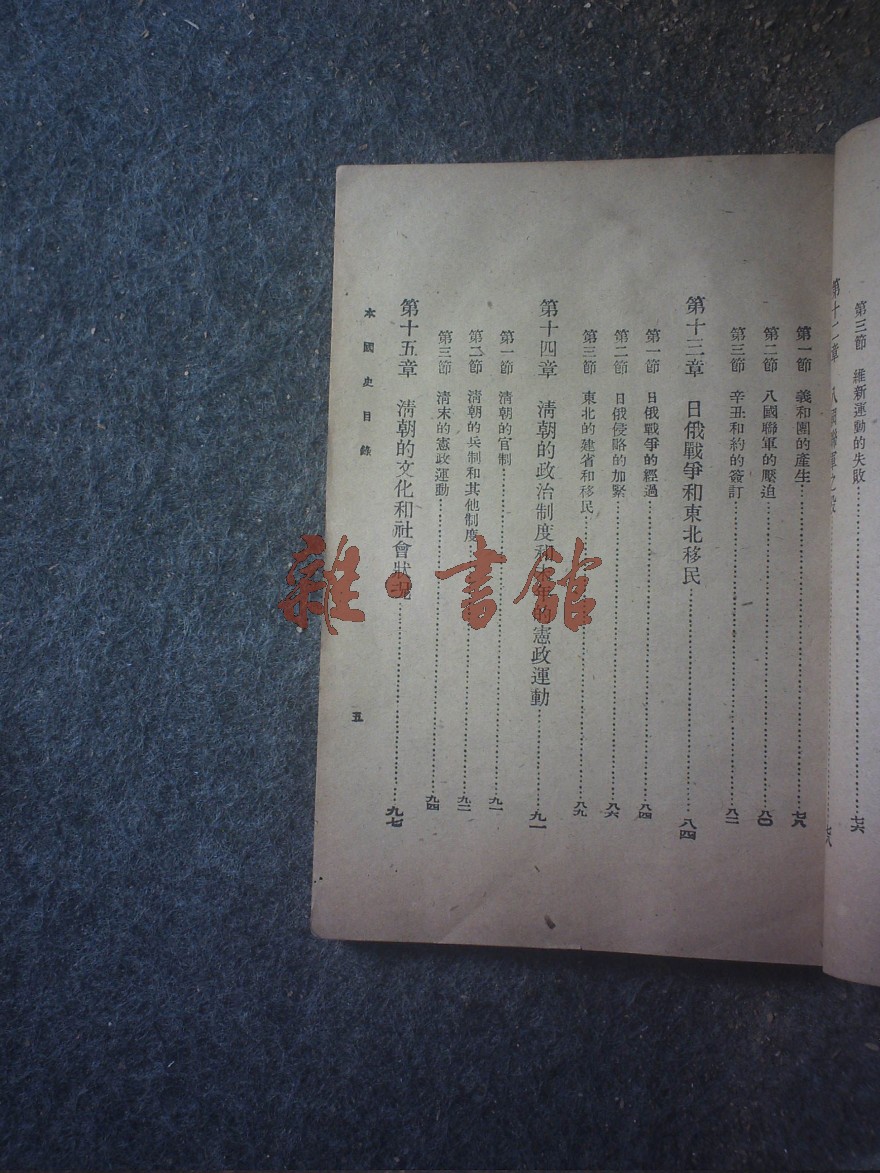 第三節 維新運動的失敗……七六
第十二章 八國聯軍之役……七八
第一節 義和團的產生……七八
第二節 八國聯軍的壓迫……八〇
第三節 辛丑和約的簽訂……八二
第十三章 日俄戰爭和東北移民……八四
第一節 日俄戰爭的經過……八四
第二節 日俄侵略的加緊……八六
第三節 東北的建省和移民……八九
第十四章 清朝的政治制度和末年的憲政運動……九一
第一節 清朝的官制……九一
第二節 清朝的兵制和其他制度……九二
第三節 清末的憲政運動……九四
第十五章 清朝的文化和社會狀況……九七
本國史目錄
五
雜·書館